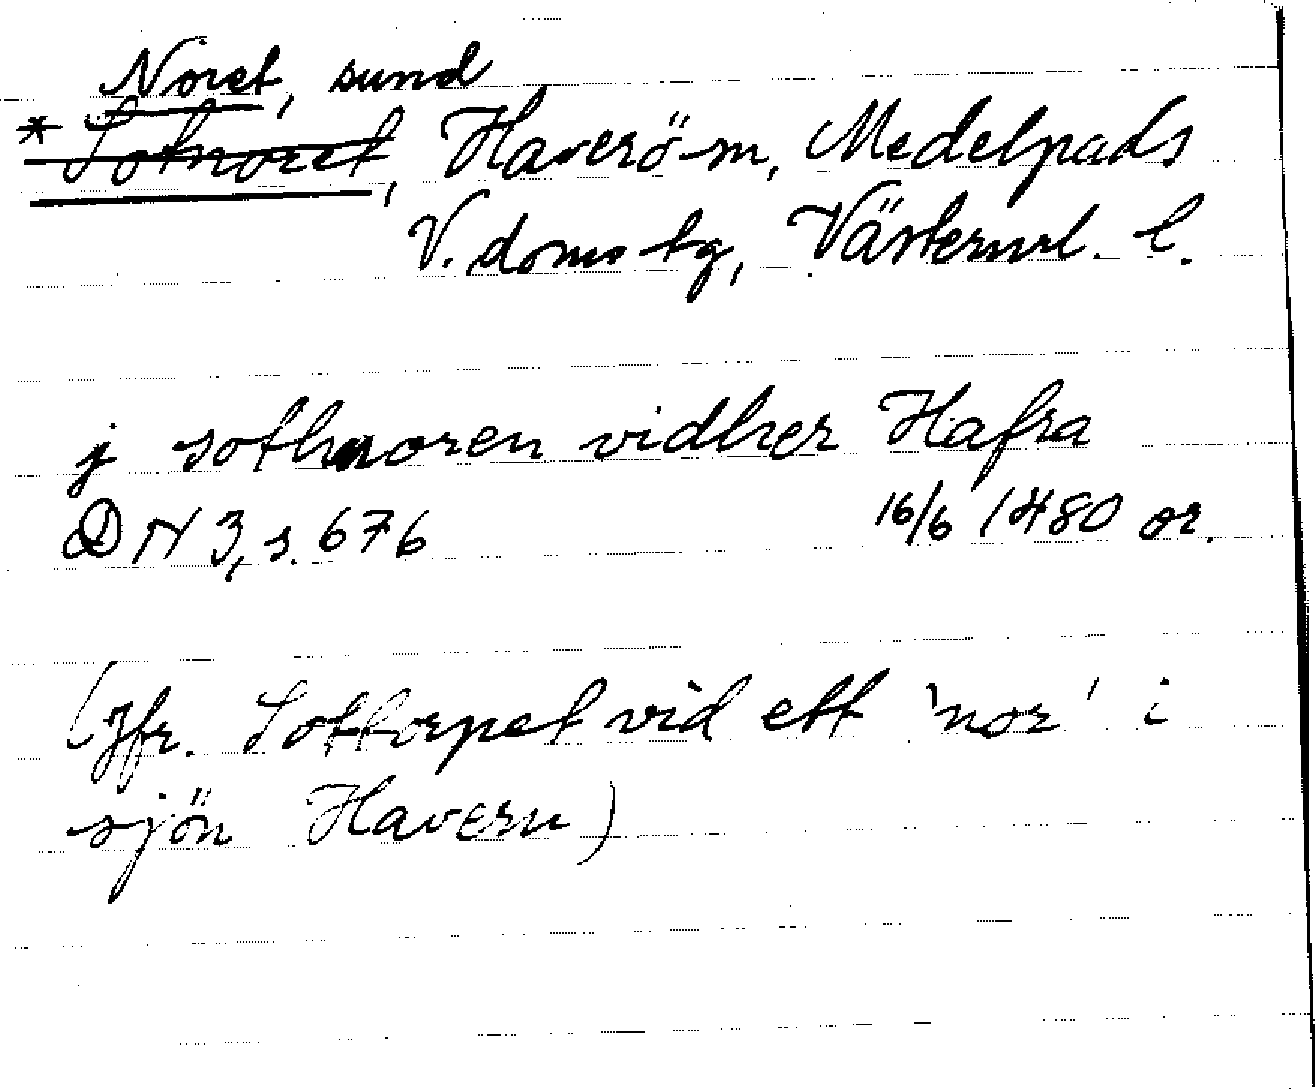 Noret, sund
* Sotnoret, Haverö sn, Medelpads
V. doms tg, Västernrl. l.
j sothnoren vidher Hafra
DN 3, s. 676 16/6 1480 or.
(Jfr. Sottorpet vid ett 'nor' i
sjön Havern)